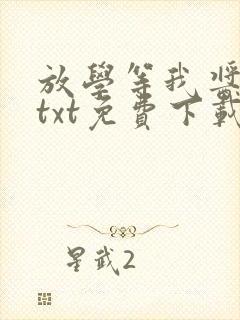 放學等我將
txt免費下載
星武2